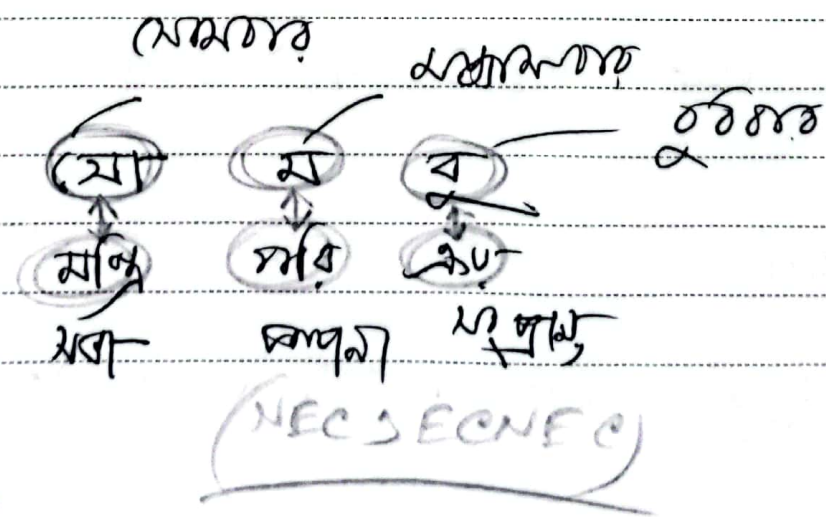 সোমবার
মঙ্গলবার
বুধবার
সো ম বু
মন্ত্রি পরি ক্রয়
সভা কল্পনা
NEC, ECNEC